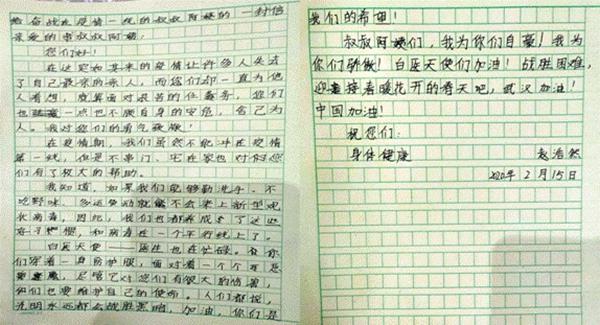 给奋战在疫情一线的叔叔阿姨的一封信
亲爱的叔叔阿姨:
您们好!
在这突如其来的疫情让许多人失去
了自己最亲的亲人,而您们却一直为他
人着想,就算面对艰苦的任务,您们
也一点也不顾自身的安危,舍己为
人。我对您们的勇气敬佩!
在疫情期,我们虽然不能冲在疫情
第一线,但是不串门、宅在家也对你
们有了极大的帮助。
我知道,如果我们能够勤洗手、不
吃野味、多运动就能不会染上新型冠
状病毒,因此,我们也都养成了这些
好习惯,和病毒在一个平行线上了。
白衣天使——医生也在忙碌。
们穿着一身防护服,面对着一个个
尽管它对您们有很大的伤害,
们也要维护自己的使命。人们都说,
光明永远都会战胜黑暗,加油,你们是
我们的希望!
叔叔阿姨们,我为你们自豪!我为
你们骄傲!白医天使们加油!战胜困难,
迎接春暖花开的春天吧,武汉加油!
中国加油!
祝您们:
身体健康
赵浩然
2020年2月15日